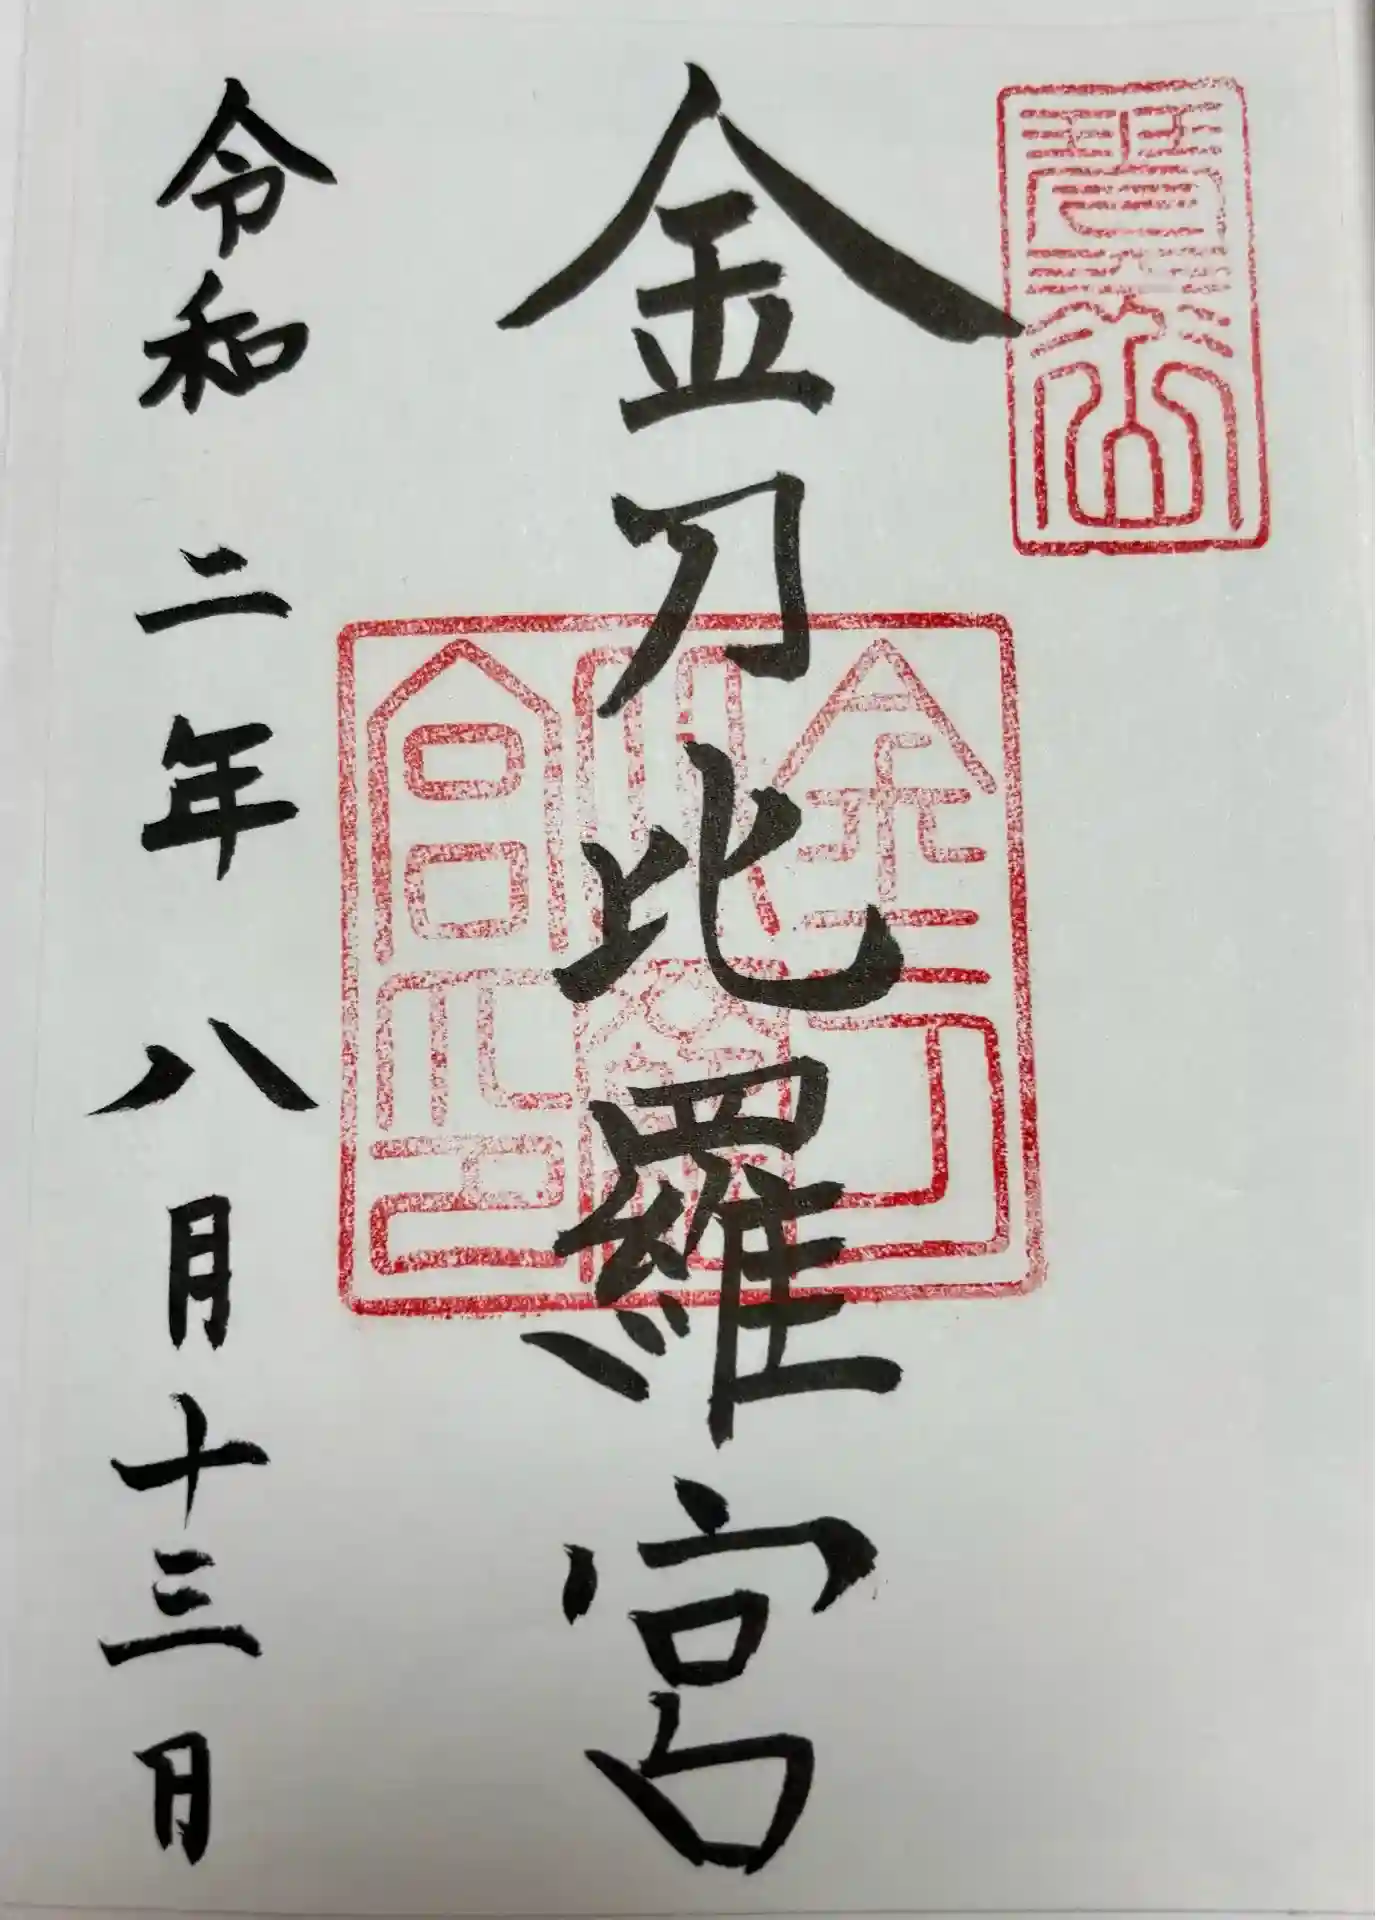 金刀比羅宮
金刀比羅宮印
令和二年八月十三日